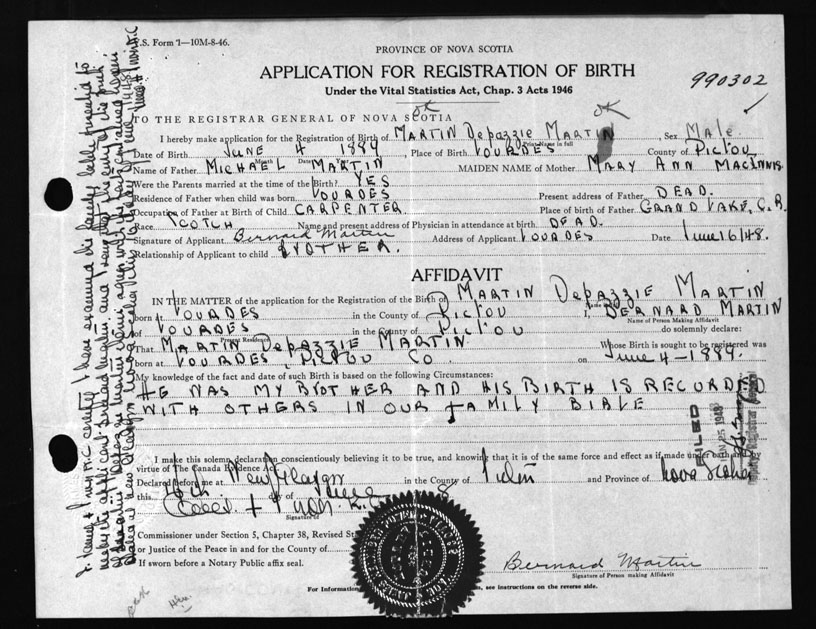 V.S. Form 7—10M-8-46.
PROVINCE OF NOVA SCOTIA
APPLICATION FOR REGISTRATION OF BIRTH
990302
Under the Vital Statistics Act, Chap. 3 Acts 1946
OK OK
TO THE REGISTRAR GENERAL OF NOVA SCOTIA
I hereby make application for the Registration of Birth of MARTIN Depazzie MARTIN, Sex Male
Print Name in full
Date of Birth JUNE 4 1889, Place of Birth LOURDES County of PICTOU
Month Date
Name of Father MICHAEL MARTIN MAIDEN NAME of Mother MARY ANN MACINNIS
Were the Parents married at the time of the Birth? YES
Residence of Father when child was born LOURDES Present address of Father DEAD.
Occupation of Father at Birth of Child CARPENTER Place of birth of Father GRAND LAKE, C.B.
Race SCOTCH Name and present address of Physician in attendance at birth DEAD.
Signature of Applicant Bernard Martin Address of Applicant LOURDES Date June 16/48.
Relationship of Applicant to child BROTHER.
AFFIDAVIT
IN THE MATTER of the application for the Registration of the Birth of MARTIN Depazzie MARTIN
born at LOURDES in the County of PICTOU I, BERNARD MARTIN
Name of Person Making Affidavit
of LOURDES in the County of PICTOU do solemnly declare:
Present Residence
That MARTIN Depazzie MARTIN Whose Birth is sought to be registered was
born at LOURDES, PICTOU Co. on June 4-1889.
My knowledge of the fact and date of such Birth is based on the following Circumstances:
HE WAS MY BROTHER AND HIS BIRTH IS RECORDED
WITH OTHERS IN OUR FAMILY BIBLE
FILED
1948
I make this solemn declaration conscientiously believing it to be true, and knowing that it is of the same force and effect as if made under oath and by
virtue of The Canada Evidence Act.
Declared before me at New Glasgow in the County of Pictou and Province of Nova Scotia
this 16th day of June
Signature of
Commissioner under Section 5, Chapter 38, Revised
or Justice of the Peace in and for the County of
If sworn before a Notary Public affix seal.
Bernard Martin
Signature of Person making Affidavit
For Information see instructions on the reverse side.